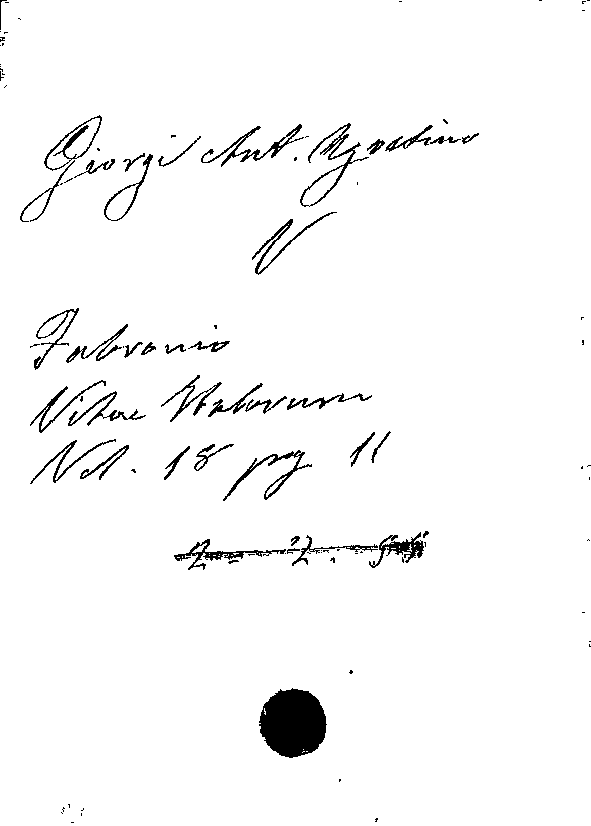 Giorgi Ant. Agostino
V
Fabronio
Vitae Italorum
Vol. 18 pag 11